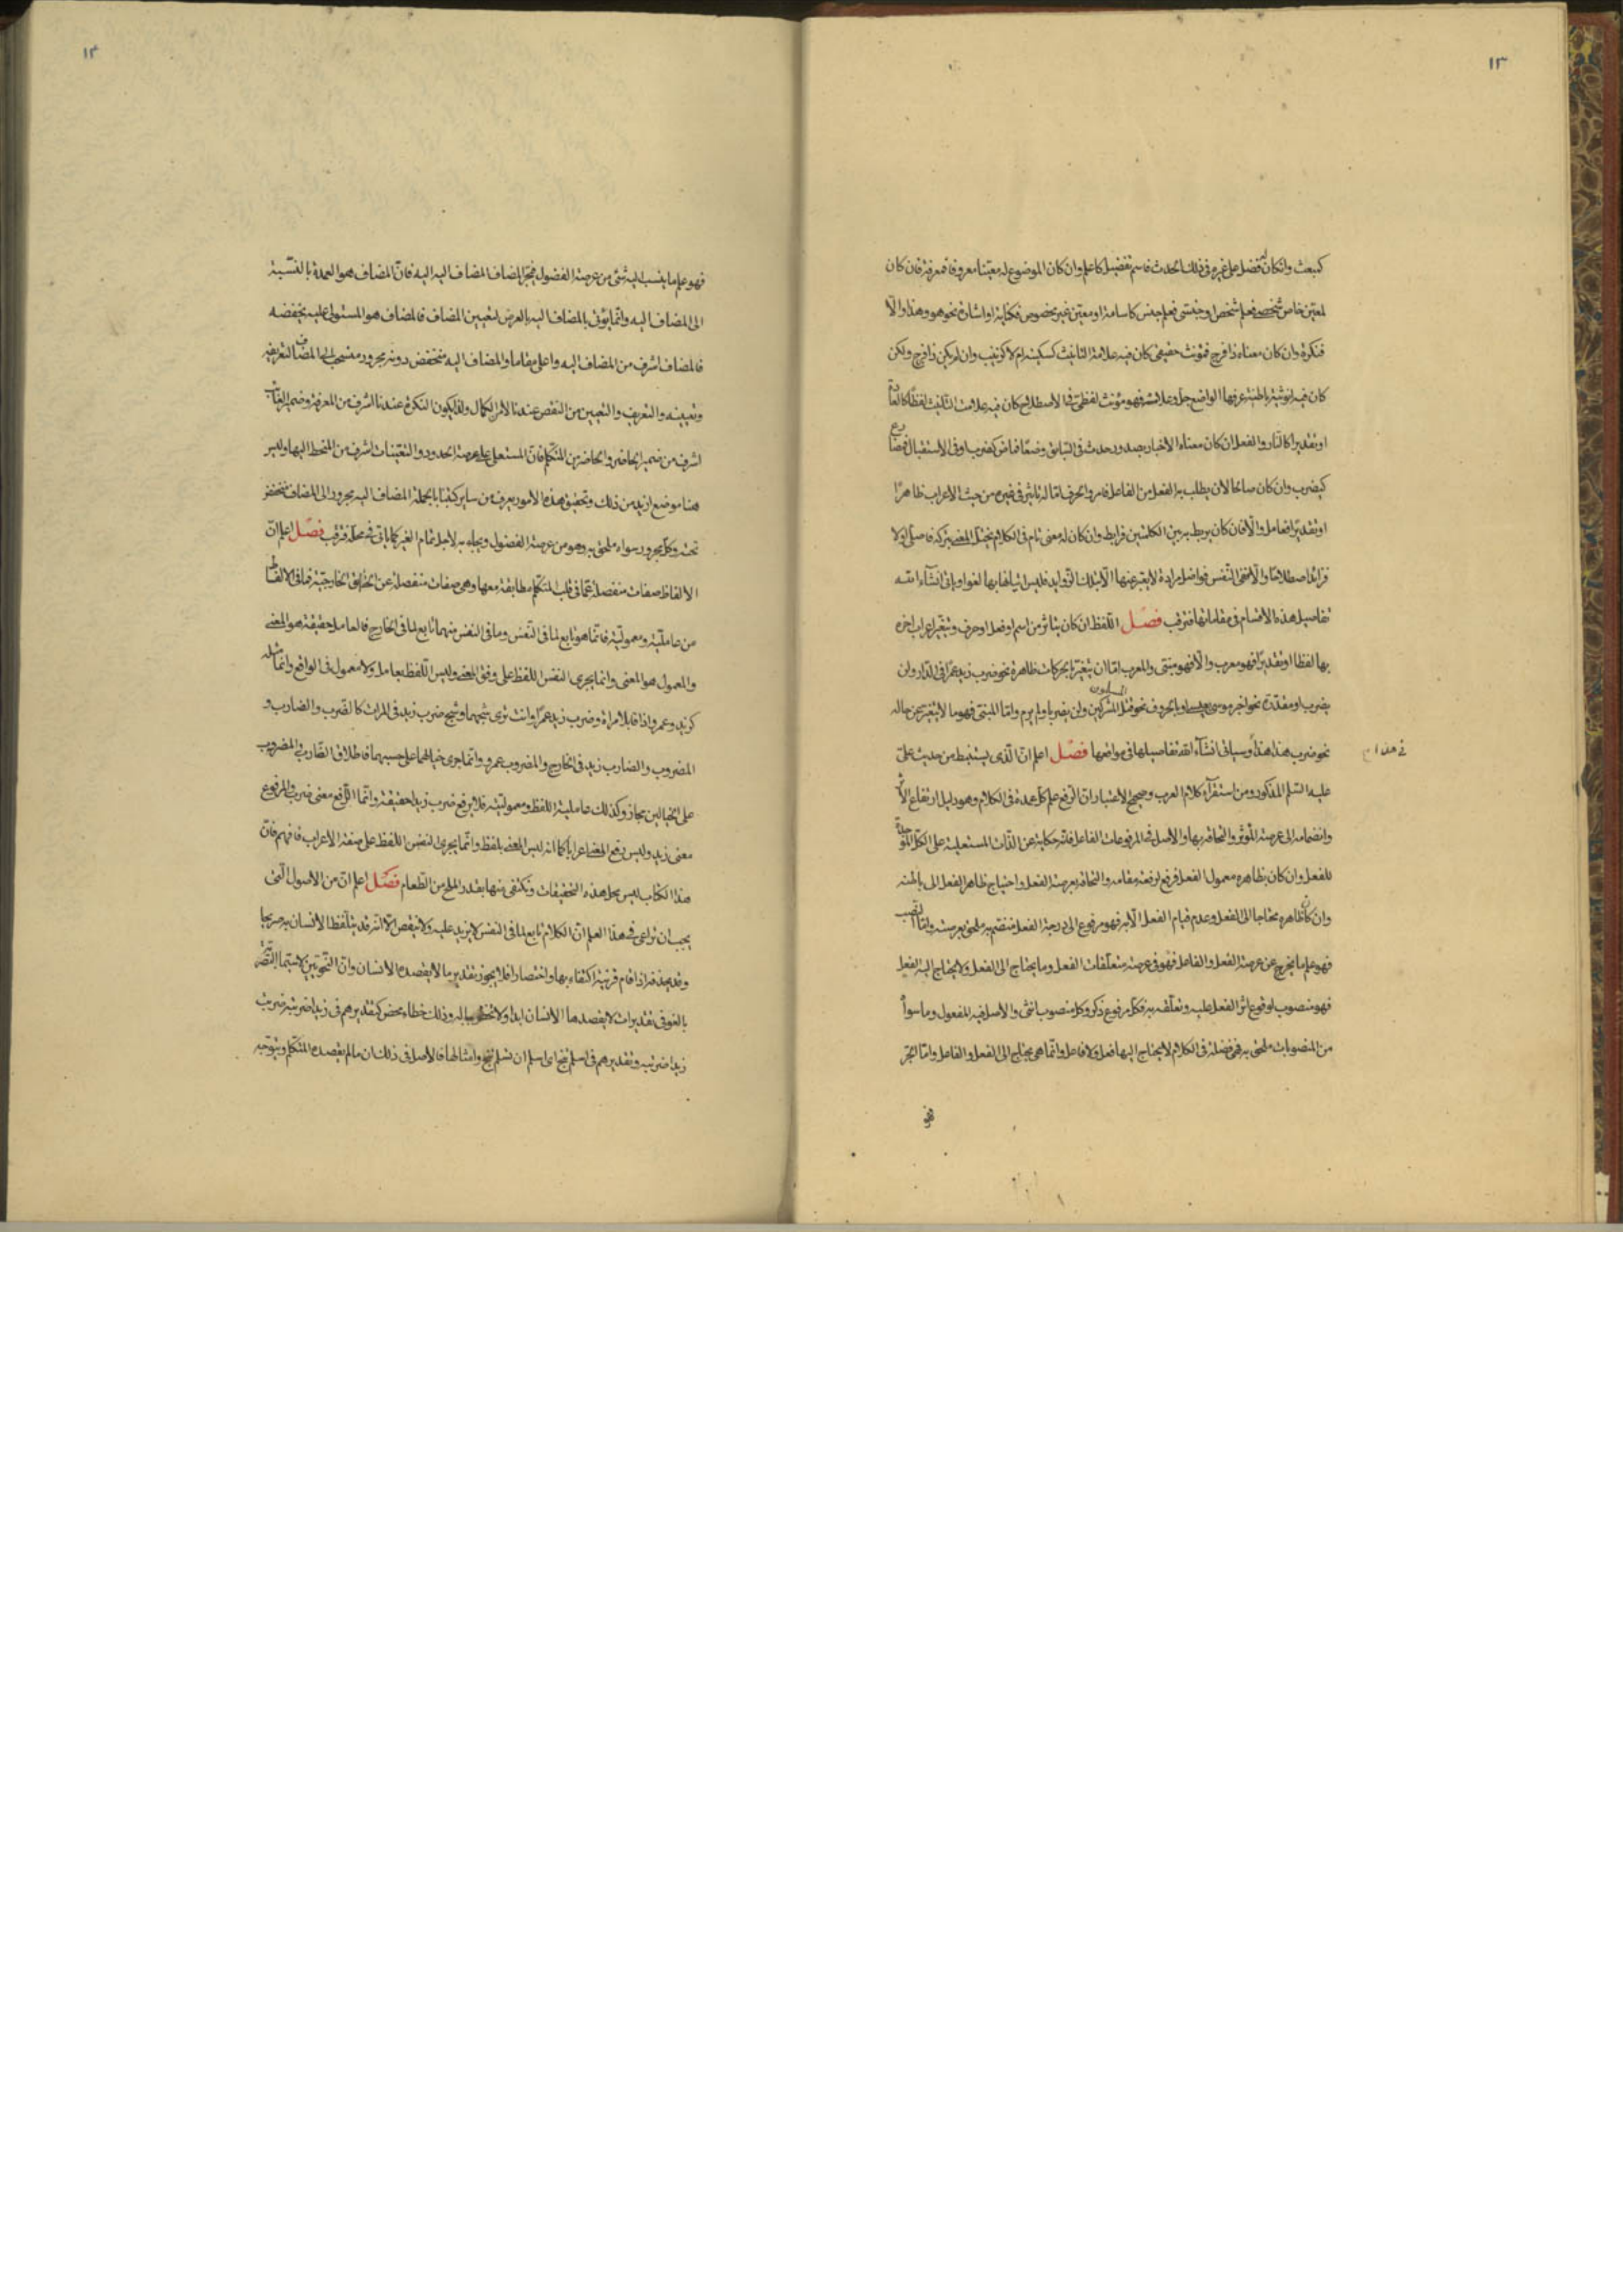 ١٣
كبعث وانكان له فضل على غيره فى ذلك الحدث فاسم تفضيل كاعلم وان كان الموضوع له معيّنا معروفا فمعرفة فان كان
لمعيّن خاص شخصى فعلم شخص او جنسى فعلم جنس كاسامة او معيّن غير مخصوص فكناية او اشارة نحو هو وهذا والّا
فنكرة وان كان معناه ذا فرج فمؤنث حقيقى كان فيه علامة التانيث كسكينة ام لا كزينب وان لم يكن ذا فرج ولكن
كان فيه انوثيّة باطنيّة عرفها الواضع جلّ وعلا فهو مؤنث لفظىّ فى الاصطلاح كان فيه علامت التانيث لفظًا كالعادة
او تقديرا كالنار والفعل ان كان معناه الاخبار بصدور حدث فى السّابق وضعًا فماض كضرب او فى الاستقبال فمضارع
كيضرب وان كان صالحا لان يطلب به الفعل من الفاعل فامر والحرف امّا له تاثير فى غيره من حيث الاعراب ظاهرًا
او تقديرًا فعامل والّا فان كان يربط به بين الكلمتين فرابط وان كان له معنى تام فى الكلام يختلّ المعنى بتركه فاصلى والّا
فزائد اصطلاحًا والّا ففى النّفس فواضل مرادة لا يعبّر عنها الّا بتلك الزّوايد فليس اتيانها بها لغوا وياتى انشآء الله
تفاصيل هذه الاقسام فى مقاماتها فترقب فصل اللّفظ ان كان يتاثر من اسم او فعل او حرف ويتغيّر اعراب اخره
بها لفظا او تقديرًا فهو معرب والّا فهو مبنى والمعرب امّا ان يتغيّر بحركات ظاهرة نحو ضرب زيد عمرًا فى الدّار ولن
يضرب او مقدّرة نحو اجر موسى بعيسى او بالحروف نحو قتل المسلمون المشركين ولن يضربا ولم يرم وامّا المبنى فهو ما لا يتغير عن حاله
نحو ضرب هذا هذا وسياتى انشآء الله تفاصيلها فى مواضعها فصل اعلم انّ الّذى يستنبط من حديث علىّ
فى هذا
عليه السّلم المذكور ومن استقرآء كلام العرب وصحيح الاعتبار ان الرّفع علم كلّ عمدة فى الكلام وهو دليل ارتفاع الاثر
وانضمامه الى عرصة المؤثّر والتحاقه بها والاصل فى المرفوعات الفاعل فانّه حكاية عن الذّات المستعلية على الكلّ
للفعل وان كان بظاهره معمول الفعل فرفع لرفعة مقامه والتحاقه بعرصة الفعل واحتياج ظاهر الفعل الى باطنه
وان كان ظاهره محتاجا الى الفعل وعدم قيام الفعل الّا به فهو مرفوع الى درجة الفعل منضمّ به ملحق بعرصته وامّا النّصب
فهو علم ما يخرج عن عرصة الفعل والفاعل فهو فى عرصة متعلّقات الفعل وما يحتاج الى الفعل ولا يحتاج اليه الفعل
فهو منصوب لوقوع اثر الفعل عليه وتعلّقه به فكلّ مرفوع ذكر وكل منصوب انثى والاصل فيه المفعول وما سواه
من المنصوبات ملحق به فهى فضلة فى الكلام لا يحتاج اليها فعل ولا فاعل وانّما هى يحتاج الى الفعل والفاعل وامّا الجرّ
فهو
١٤
فهو علم ما ينسب اليه شئ من عرصة الفضول بجرّ المضاف المضاف اليه اليه فانّ المضاف هو العمدة بالنّسبة
الى المضاف اليه وانّما يؤتى بالمضاف اليه بالعرض لتعيين المضاف فالمضاف هو المستولى عليه يخفضه
فالمضاف اشرف من المضاف اليه واعلى مقاما والمضاف اليه منخفض دونه مجرور منسحب لى المضاف لتعريفه
وتعيينه والتعريف والتعيين من النقص عندنا لا من الكمال ولذا يكون النكرة عندنا اشرف من المعرفة وضمير الغائب
اشرف من ضمير الحاضر والحاضر من المتكلّم فانّ المستعلى على عرصة الحدود والتعيّنات اشرف من المنحطّ اليها وليس
هنا موضع ازيد من ذلك وتحقيق هذه الامور يعرف من ساير كتبنا بالجملة المضاف اليه مجرور الى المضاف منخفض
تحته وكل مجرور سواه ملحق به وهو من عرصة الفضول ويجاء به لاجل تمام الغير كما ياتى فى محلّه فترقب فصل اعلم انّ
الالفاظ صفات منفصلة عمّا فى قلب المتكلّم مطابقة معها وهى صفات منفصلة عن الحقائق الخارجيّة فما فى الالفاظ
من عامليّة ومعموليّة فانّما هو تابع لما فى النّفس وما فى النفس منهما تابع لما فى الخارج فالعامل حقيقة هو المعنى
والمعمول هو المعنى وانما يجرى النفس اللفظ على وفق المعنى وليس اللّفظ بعامل ولا معمول فى الواقع وانما مثله
كزيد وعمرو اذا قابلا مراة وضرب زيد عمرًا وانت ترى شبحهما وشبح ضرب زيد فى المرات كالضّرب والضارب و
المضروب والضارب زيد فى الخارج والمضروب عمرو وانّما جرى خيالهما على حسبهما فاطلاق الضّارب والمضروب
على الخيالين مجاز وكذلك عاملية اللفظ ومعموليّته فلا يرفع ضرب زيدا حقيقة وانّما الرّافع معنى ضرب والمرفوع
معنى زيد وليس رفع المعنى اعرابًا كما انه ليس المعنى بلفظ وانّما يجرى النفس اللفظ على صفة الاعراب فافهم فانّ
هذا الكتاب ليس محل هذه التحقيقات ونكتفى منها بقدر الملح من الطّعام فصل اعلم انّ من الاصول الّتى
يجب ان تراعى فى هذا العلم انّ الكلام تابع لما فى النفس لا يزيد عليه ولا ينقص الّا انّه قد يتلفّظ الانسان به صريحا
وقد يحذفه اذا قام قرنية اكتفاء بها واختصارا فلا يجوز تقدير ما لا يقصده الانسان وانّ النّحويّين لا سيّما البصريّة
بالغو فى تقديرات لا يقصدها الانسان ابدا ولا تخطر بباله وذلك خطاء محض كتقديرهم فى زيدا ضربته ضربت
زيدا ضربته وتقديرهم فى اسلم تنج اى اسلم ان تسلم تنج وامثالها فالاصل فى ذلك ان ما لم يقصده المتكلّم ويتوجّه